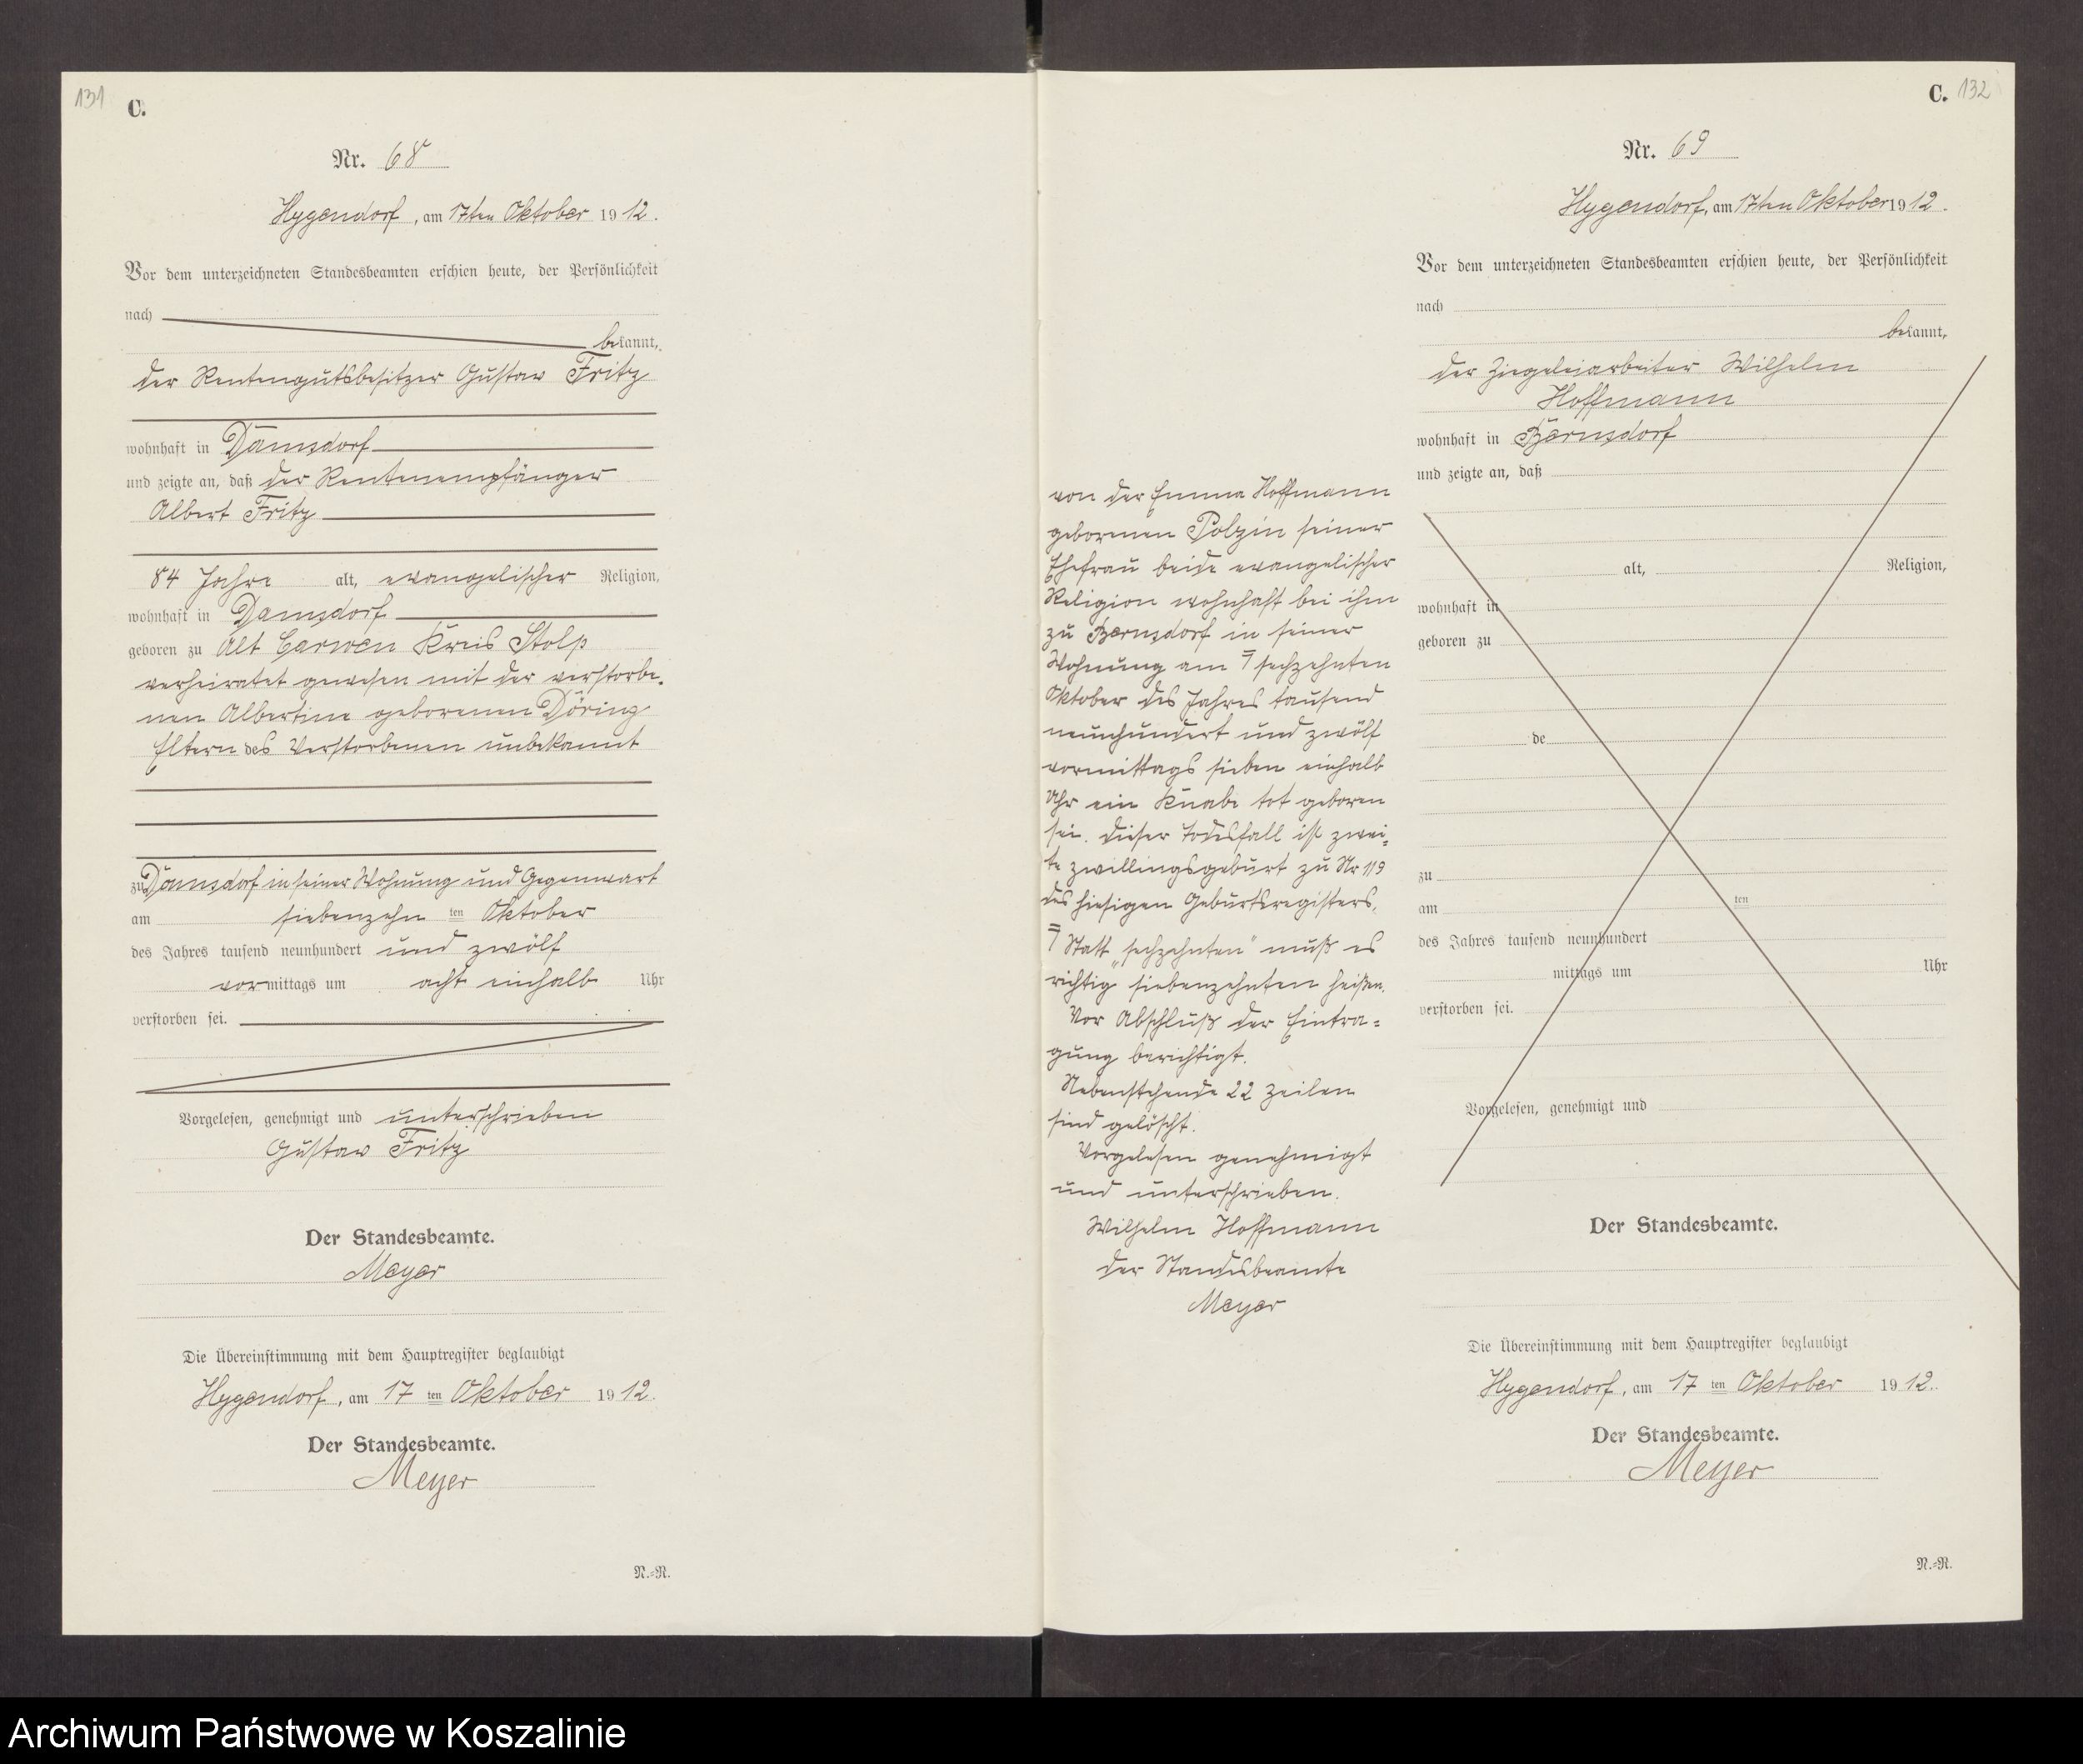 131
C.
Nr. 68
Hygendorf, am 17ten Oktober 1912.
Vor dem unterzeichneten Standesbeamten erschien heute, der Persönlichkeit
nach
bekannt,
der Rentengutsbesitzer Gustav Fritz
wohnhaft in Damsdorf
und zeigte an, daß der Rentenempfänger
Albert Fritz
84 Jahre alt, evangelischer Religion,
wohnhaft in Damsdorf
geboren zu Alt Carwen Kreis Stolp
verheiratet gewesen mit der verstorbe-
nen Albertine geborenen Döring
Eltern des Verstorbenen unbekannt
zu Damsdorf in seiner Wohnung und Gegenwart
am siebenzehn ten Oktober
des Jahres tausend neunhundert und zwölf
vormittags um acht einhalb Uhr
verstorben sei.
Vorgelesen, genehmigt und unterschrieben
Gustav Fritz
Der Standesbeamte.
Meyer
Die Übereinstimmung mit dem Hauptregister beglaubigt
Hygendorf, am 17 ten Oktober 1912.
Der Standesbeamte.
Meyer
N.=R.
C. 132
Nr. 69
Hygendorf, am 17ten Oktober 1912.
Vor dem unterzeichneten Standesbeamten erschien heute, der Persönlichkeit
nach
bekannt,
der Ziegeleiarbeiter Wilhelm
Hoffmann
wohnhaft in Bernsdorf
und zeigte an, daß
von der Emma Hoffmann
geborenen Polzin seiner
Ehefrau beide evangelischer
Religion wohnhaft bei ihm
zu Bernsdorf in seiner
Wohnung am sechzehnten
Oktober des Jahres tausend
neunhundert und zwölf
vormittags sieben einhalb
Uhr ein Knabe tot geboren
sei. Dieser Todesfall ist zwei-
te Zwillingsgeburt zu Nr 119
des hiesigen Geburtsregisters.
Statt „sechzehnten" muß es
richtig siebenzehnten heißen.
Vor Abschluß der Eintra-
gung berichtigt.
Nebenstehende 22 Zeilen
sind gelöscht.
Vorgelesen genehmigt
und unterschrieben.
Wilhelm Hoffmann
der Standesbeamte
Meyer
alt, Religion,
wohnhaft in
geboren zu
de
zu
am ten
des Jahres tausend neunhundert
mittags um Uhr
verstorben sei.
Vorgelesen, genehmigt und
Der Standesbeamte.
Die Übereinstimmung mit dem Hauptregister beglaubigt
Hygendorf, am 17 ten Oktober 1912.
Der Standesbeamte.
Meyer
N.=R.
Archiwum Państwowe w Koszalinie